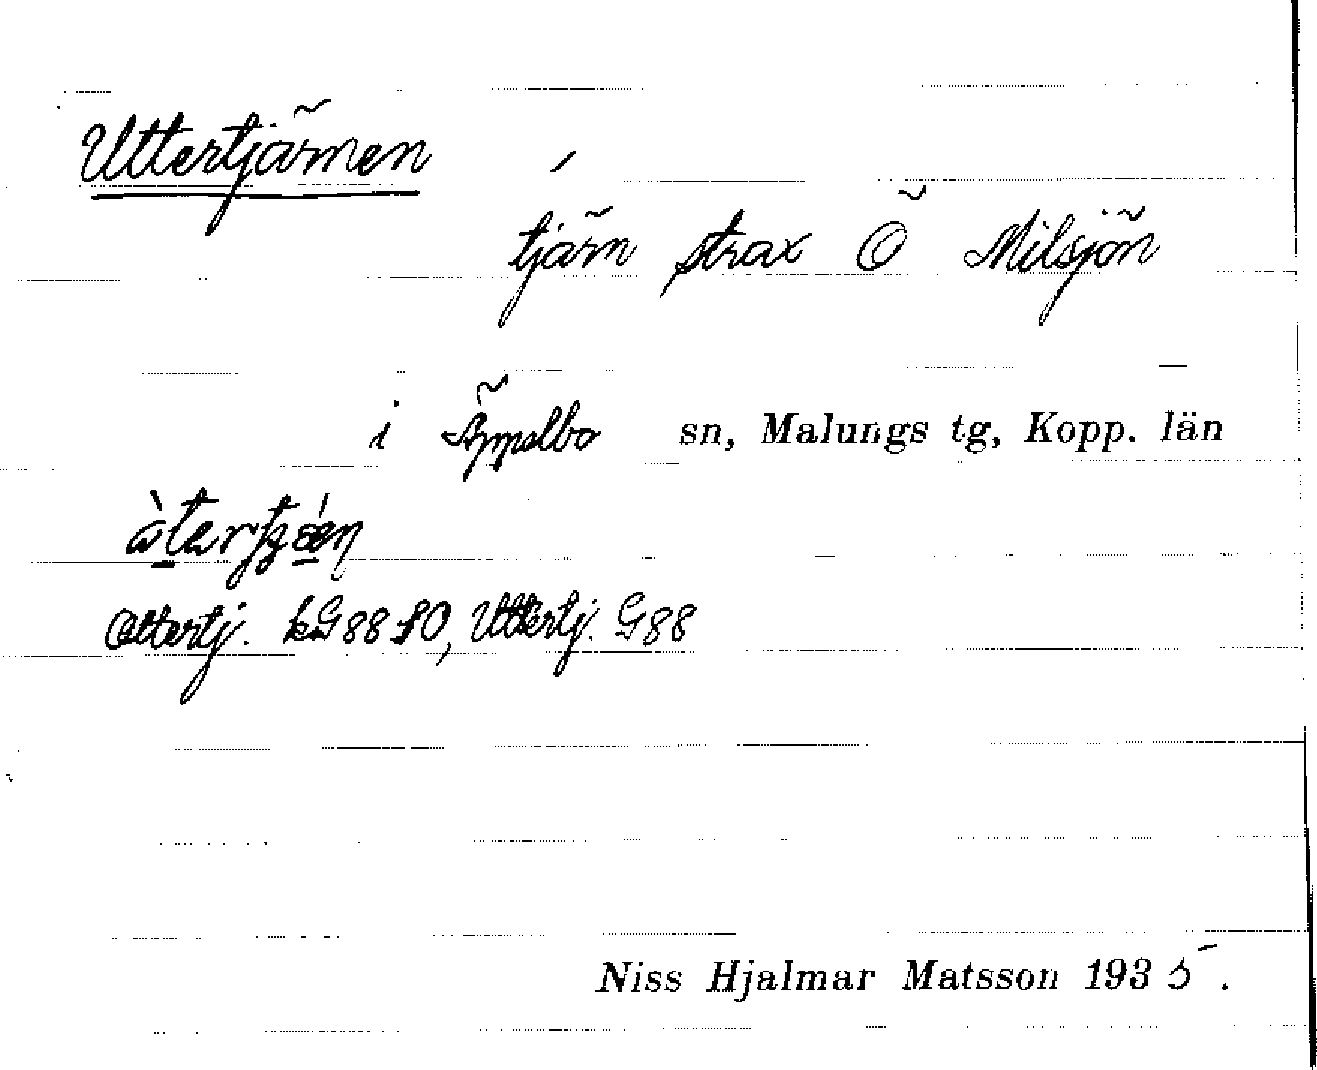 Uttertjärnen
tjärn strax Ö Milsjön
i Äppelbo sn, Malungs tg, Kopp. län
Ottertj. kG88 SO, Uttertj. G88
Niss Hjalmar Matsson 1935.